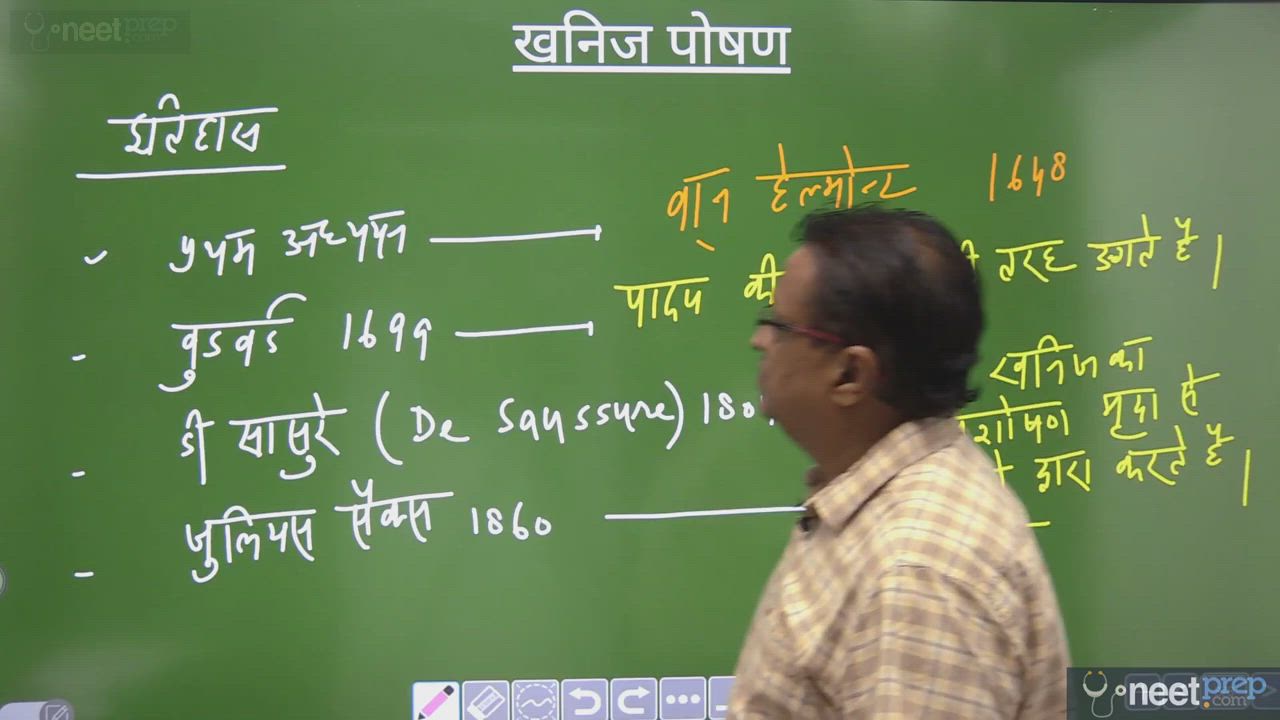 neetprep
.com
खनिज पोषण
इतिहास
प्रथम अध्ययन
वॉन हेल्मोन्ट 1648
वुडवर्ड 1699
पादप की तरह उगते है।
डी सासुरे (De Saussure) 180
खनिज का
मृदा से
द्वारा करते है।
जुलियस सैक्स 1860
neetprep
.com